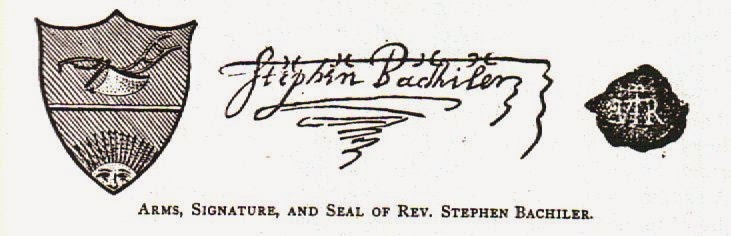 Stephin Bachiler
ARMS, SIGNATURE, AND SEAL OF REV. STEPHEN BACHILER.